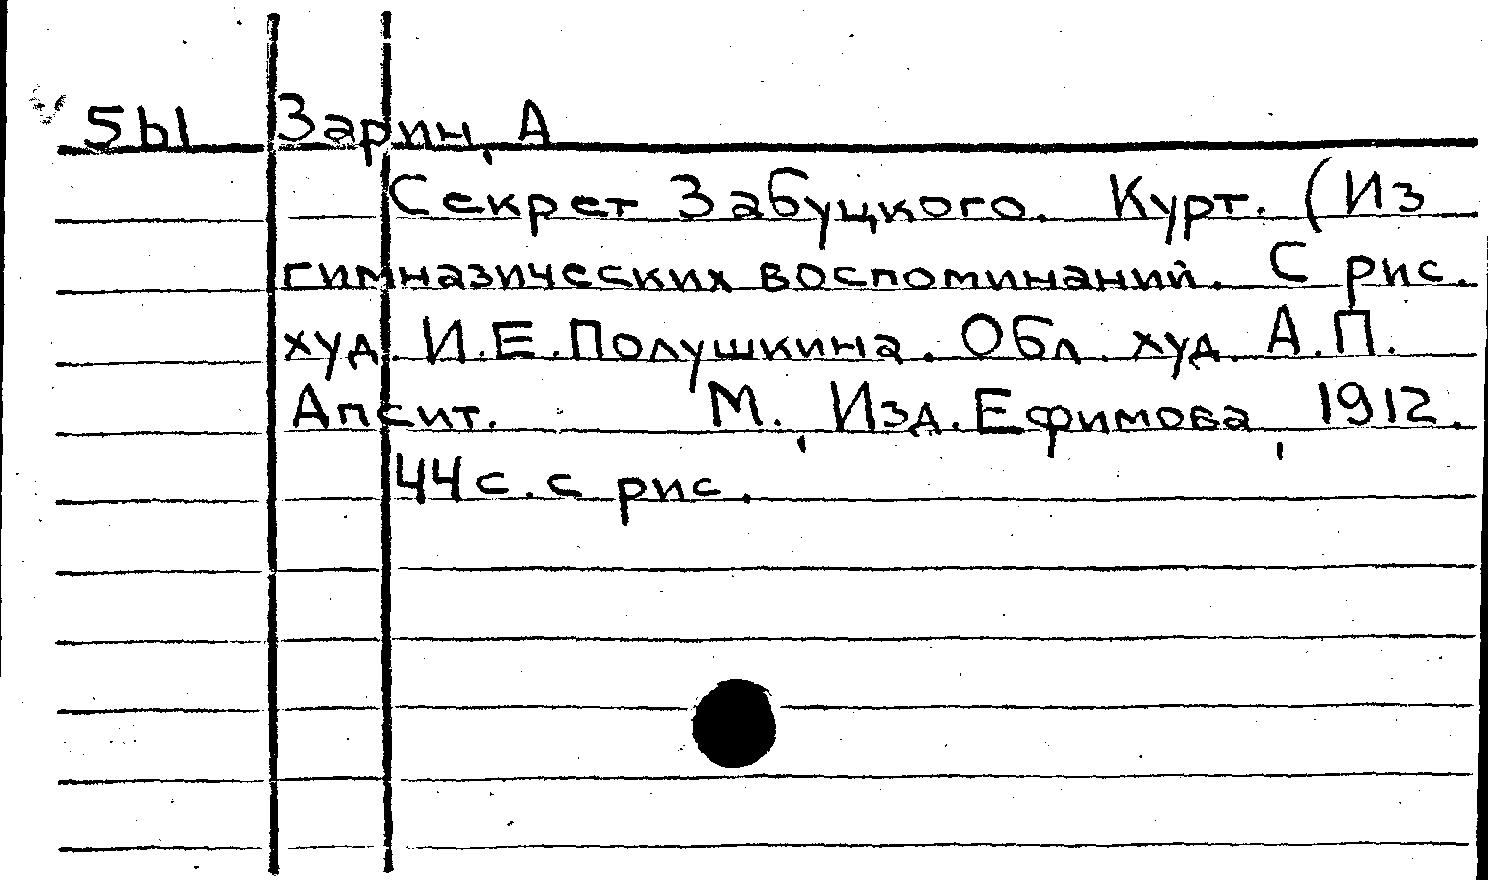 5Ы Зарин, А
Секрет Забуцкого. Курт. (Из
гимназических воспоминаний. С рис.
худ. И.Е.Полушкина. Обл. худ. А.П.
Апсит. М., Изд. Ефимова, 1912.
44 с. с рис.